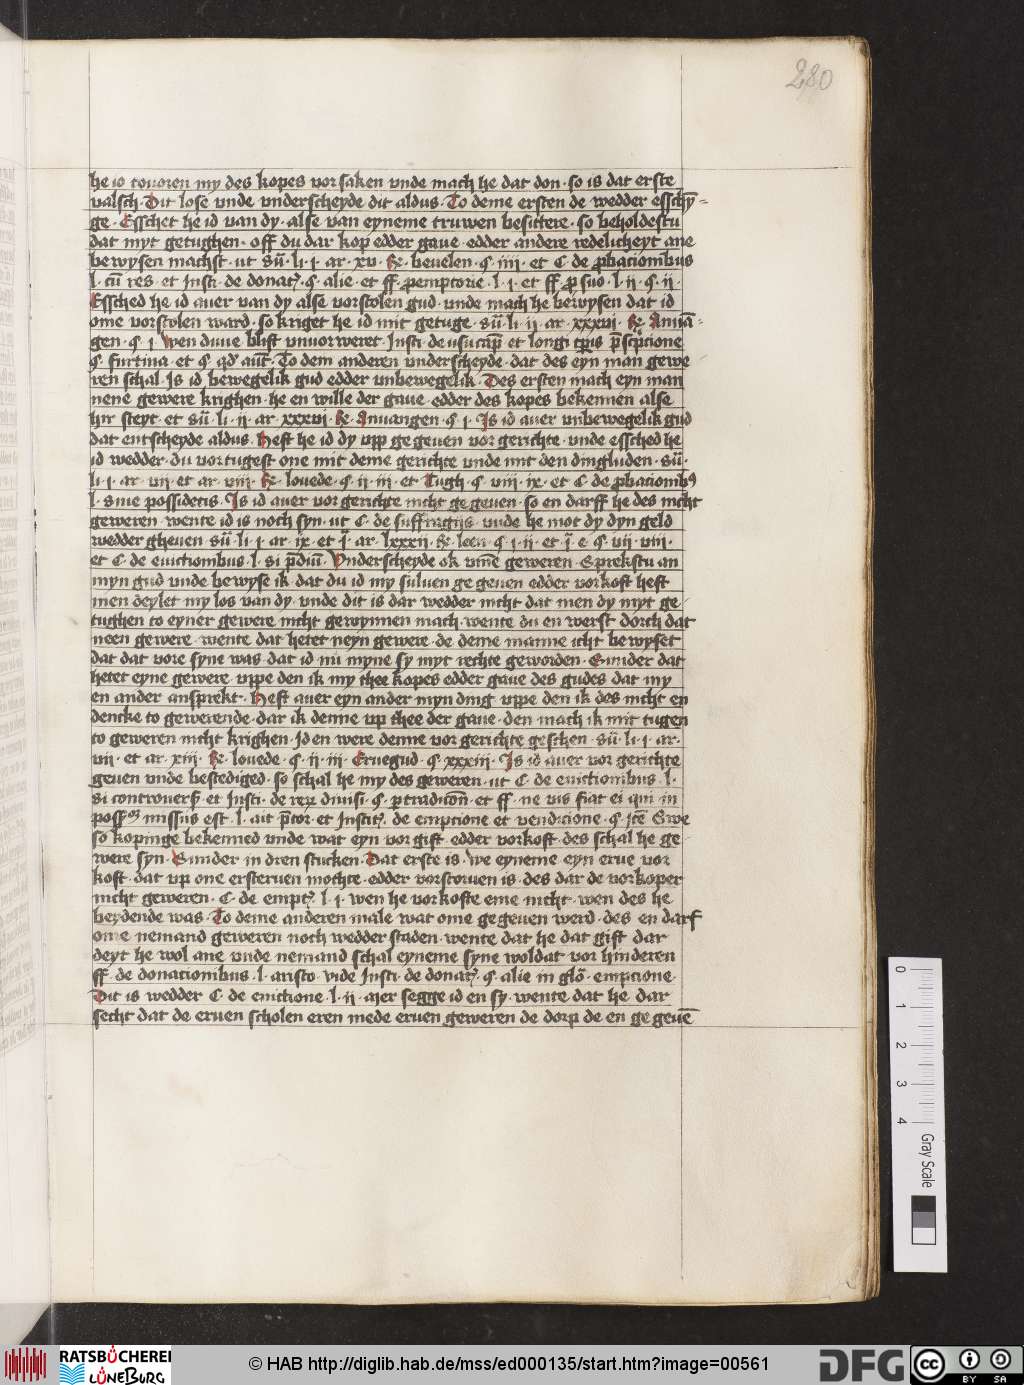 280
he io touoren my des kopes vorsaken vnde mach he dat don · so is dat erste
valsch · Dit lose vnde vnderscheyde dit aldus · To deme ersten de wedder esschȳ=
ge · Esschet he id van dy · alse van eyneme truwen besittere · so beholdestu
dat myt getughen · off du dar kop edder gaue edder andere redelicheyt ane
bewysen machst · ut su̅ · li · i · ar · xv · Re · beuelen · ꝯ · iiii · et C de ꝓbacionibus
l · cu̅ res · et Insti · de donat · ꝯ · alie · et ff ꝑemptorie · l · i · et ff ꝓ suo · l · ii · ꝯ · ii ·
Essched he id auer van dy alse vorstolen gud · vnde mach he bewysen dat id
ome vorstolen ward · so kriget he id mit getuge · su̅ · li · ii · ar · xxxvi · Re Anua̅=
gen · ꝯ · i · Wen duue blift vnuorweret · Insti · de usucap̅ et longi tꝑis p̅scͥpcione
ꝯ · furtiua · et ꝯ · qd' au̅t · To dem anderen vnderscheyde · dat des eyn man gewe
ren schal · Is id bewegelik gud edder vnbewegelik · Des ersten mach eyn man
nene gewere krighen · he en wille der gaue edder des kopes bekennen alse
hir steyt · et su̅ · li · ii · ar · xxxvi · Re · Anuangen · ꝯ · i · Is id auer vnbewegelik gud
dat entscheyde aldus · Heft he id dy vpp ge geuen vor gerichte · vnde essched he
id wedder · du vortugest one mit deme gerichte vnde mit den dingluden · su̅ ·
li · i · ar · vii · et ar · viii · Re · louede · ꝯ · ii · iii · et Tugh · ꝯ · viii · ix · et C de ꝓbacionibꝰ
l · siue possidetis · Is id auer vor gerichte nicht ge geuen · so en darff he des nicht
geweren · wente id is noch syn · ut C · de suffragiis · vnde he mot dy dyn geld
wedder gheuen su̅ · li · i · ar · ix · et ar · lxxxii · Re · ꝯ · i · ii · et ꝯ · vii · viii ·
et C · de euictionibus · l · si p̅diu̅ · Vnderscheyde ok geweren · Sprekstu an
myn gud vnde bewyse ik · dat du id my suluen ge geuen edder vorkoft heft
men deylet my los van dy · vnde dit is dar wedder nicht dat men dy myt ge
tughen to eyner gewere nicht gewynnen mach · wente du en werst dorch dat
neen gewere · wente dat hetet neyn gewere · de deme manne icht bewyset
dat dat vore syne was · dat id nu myne sy myt rechte geworden · Sunder dat
hetet eyne gewere vppe den ik my thee kopes edder gaue des gudes dat my
en ander ansprekt · Heft auer eyn ander myn ding vppe den ik des nicht en
dencke to gewerende · dar ik denne vp thee der gaue · den mach ik mit tugen
to geweren nicht krighen · Id en were denne vor gerichte geschen · su̅ · li · i · ar ·
vii · et ar · xiii · Re · louede · ꝯ · ii · iii · Eruegud · ꝯ · xxxiii · Is id auer vor gerichte
geuen vnde bestediged · so schal he my des geweren · ut C · de euictionibus · l ·
si controuers' et Insti · de reꝝ diuisi · ꝯ · ꝑ tradicōn̄ · et ff · ne vis fiat ei qui in
missus est · l · ait p̅tor · et Instit' · de emptione et vendicione · ꝯ · ite̅ Swe
so kopinge bekenned vnde wat eyn vorgift edder vorkoft des schal he ge
were syn · Sunder in dren stucken · Dat erste is · we eyneme eyn erue vor
koft · dat vp one ersteruen mochte · edder vorstoruen is · des dar de vorkoper
nicht geweren · C · de empt' · l · i · wen he vorkofte eme nicht · wen des he
beydende was · To deme anderen male wat ome gegeuen werd · des en darf
ome nemand geweren noch wedder staden · wente dat he dat gift dar
deyt he wol ane vnde nemand schal eyneme syne woldat vor hinderen
ff · de donationibus · l · aristo · vide Insti · de donat' · ꝯ · alie in glo̅ · emptione ·
Dit is wedder C · de euictione · l · ii · ajer segge id en sy · wente dat he dar
secht dat de eruen scholen eren mede eruen geweren de dorp de en ge geue̅
0 1 2 3 4 Gray Scale
RATSBÜCHEREI
LÜNEBURG
© HAB http://diglib.hab.de/mss/ed000135/start.htm?image=00561
DFG
cc BY SA